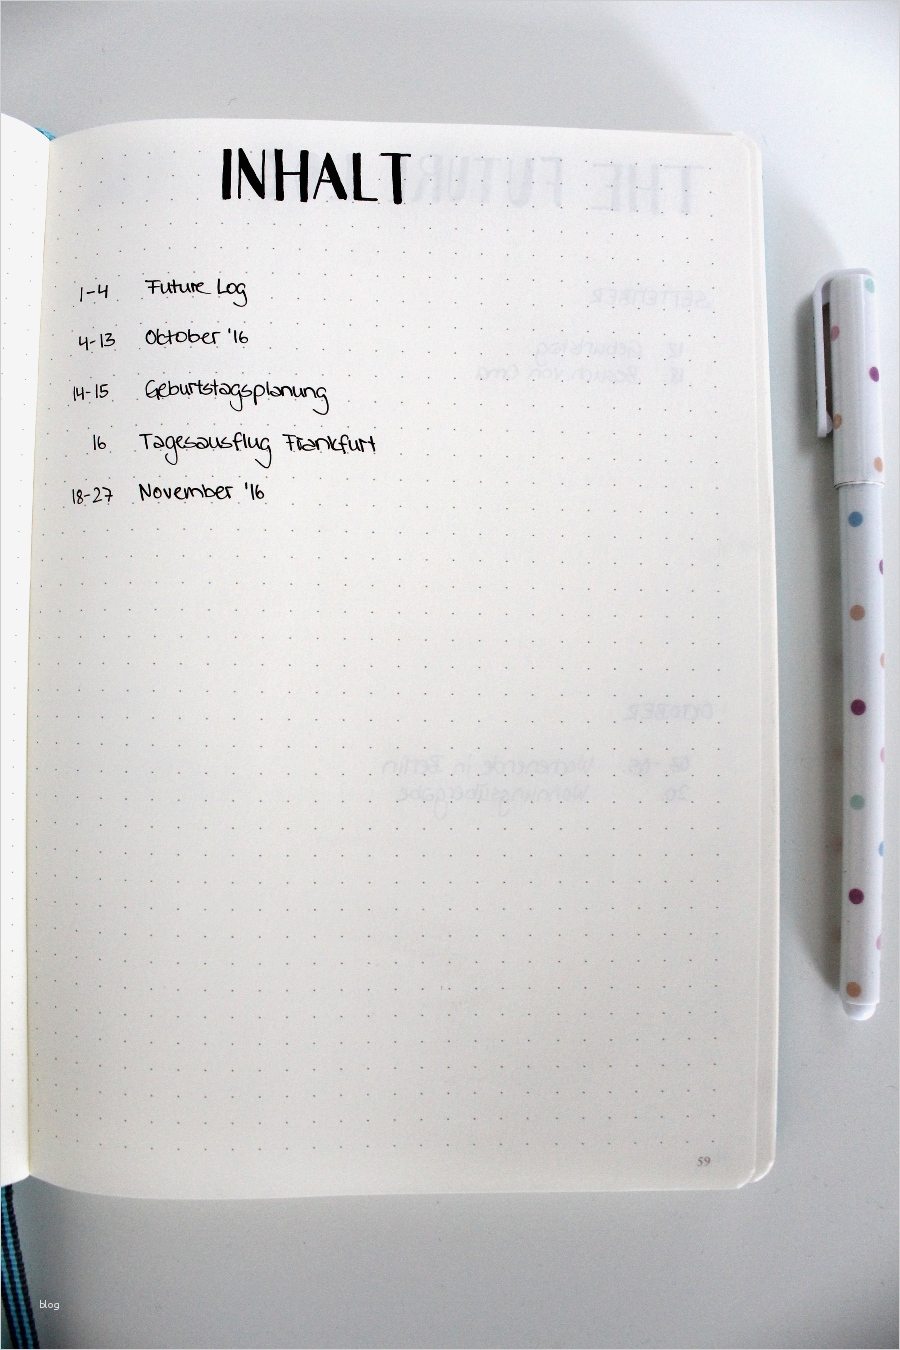 INHALT
1-4 Future Log
4-13 Oktober '16
14-15 Geburtstagsplanung
16 Tagesausflug Frankfurt
18-27 November '16
59
blog